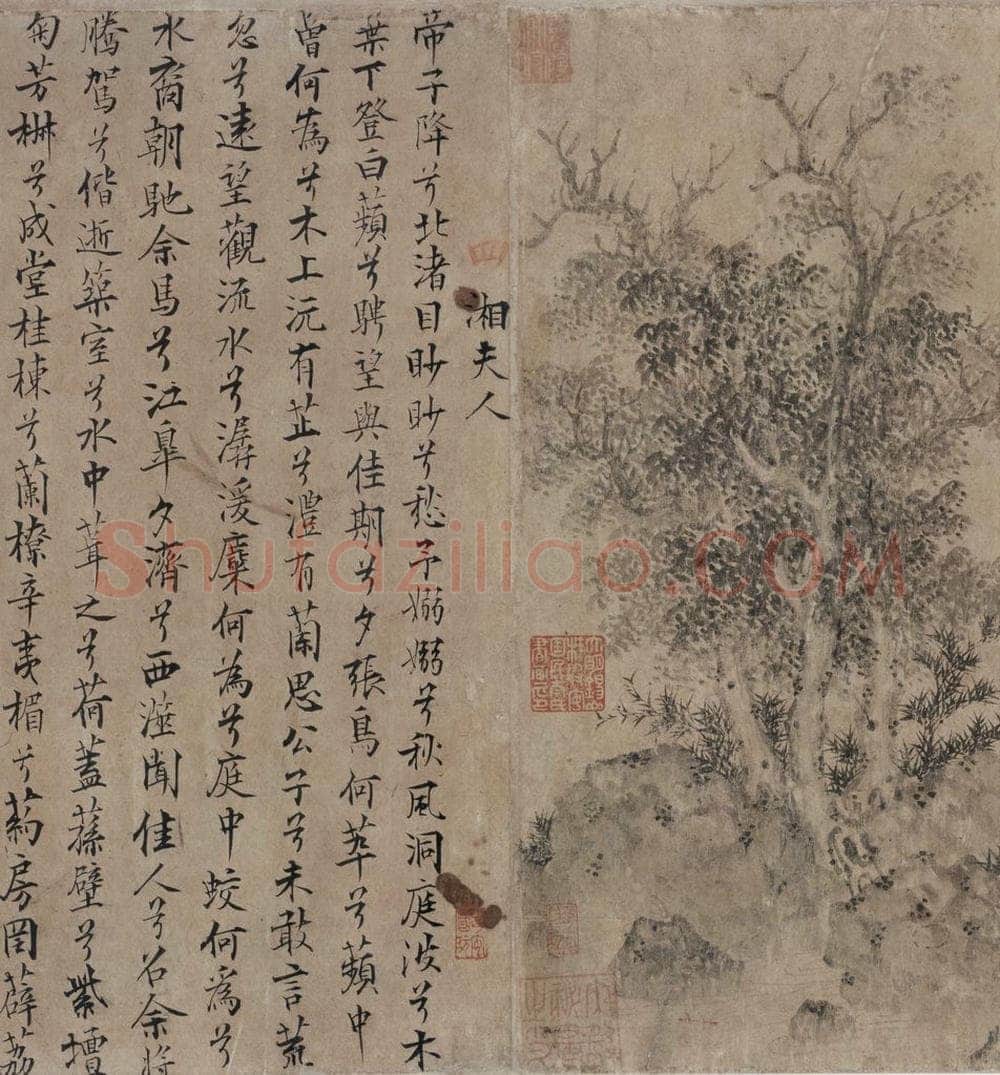 湘夫人
帝子降兮北渚目眇眇兮愁予嫋嫋兮秋風洞庭波兮木
葉下登白蘋兮騁望與佳期兮夕張鳥何萃兮蘋中
曾何為兮木上沅有芷兮澧有蘭思公子兮未敢言荒
忽兮遠望觀流水兮潺湲麋何為兮庭中蛟何為兮
水裔朝馳余馬兮江皋夕濟兮西澨聞佳人兮召余將
騰駕兮偕逝築室兮水中葺之兮荷蓋蓀壁兮紫壇
匊芳椒兮成堂桂棟兮蘭橑辛夷楣兮葯房罔薜荔
Shufaziliao.COM